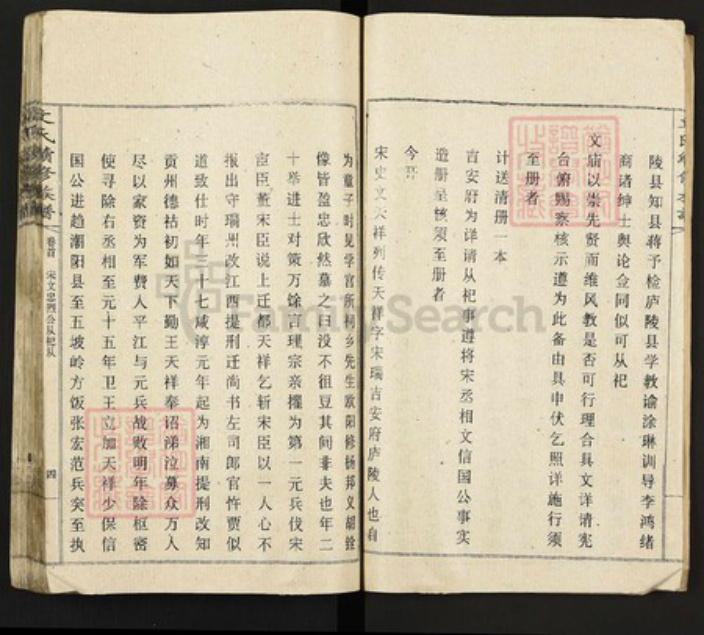 陵县知县蒋予检庐陵县学教谕涂琳训导李鸿绪
商诸绅士舆论佥同似可从祀
文庙以崇先贤而维风教是否可行理合具文详请宪
台俯赐察核示遵为此备由具申伏乞照详施行须
至册者
计送清册一本
吉安府为详请从祀事遵将宋丞相文信国公事实
造册呈核须至册者
今开
宋史文天祥列传天祥字宋瑞吉安府庐陵人也自
为童子时见学宫所祠乡先生欧阳修杨邦乂胡铨
像皆盈忠欣然慕之曰没不徂豆其间非夫也年二
十举进士对策万馀言理宗亲擢为第一元兵伐宋
宦臣董宋臣说上迁都天祥乞斩宋臣以一人心不
报出守瑞州改江西提刑迁尚书左司郎官忤贾似
道致仕时年三十七咸淳元年起为湘南提刑改知
贡州德祐初如天下勤王天祥奉诏涕泣募众万人
尽以家资为军费人平江与元兵战败明年除枢密
使寻除右丞相至元十五年卫王立加天祥少保信
国公进趋潮阳县至五坡岭方饭张宏范兵突至执
文氏续修族谱
卷首
宋文忠烈公从祀从
四
FamilySearch